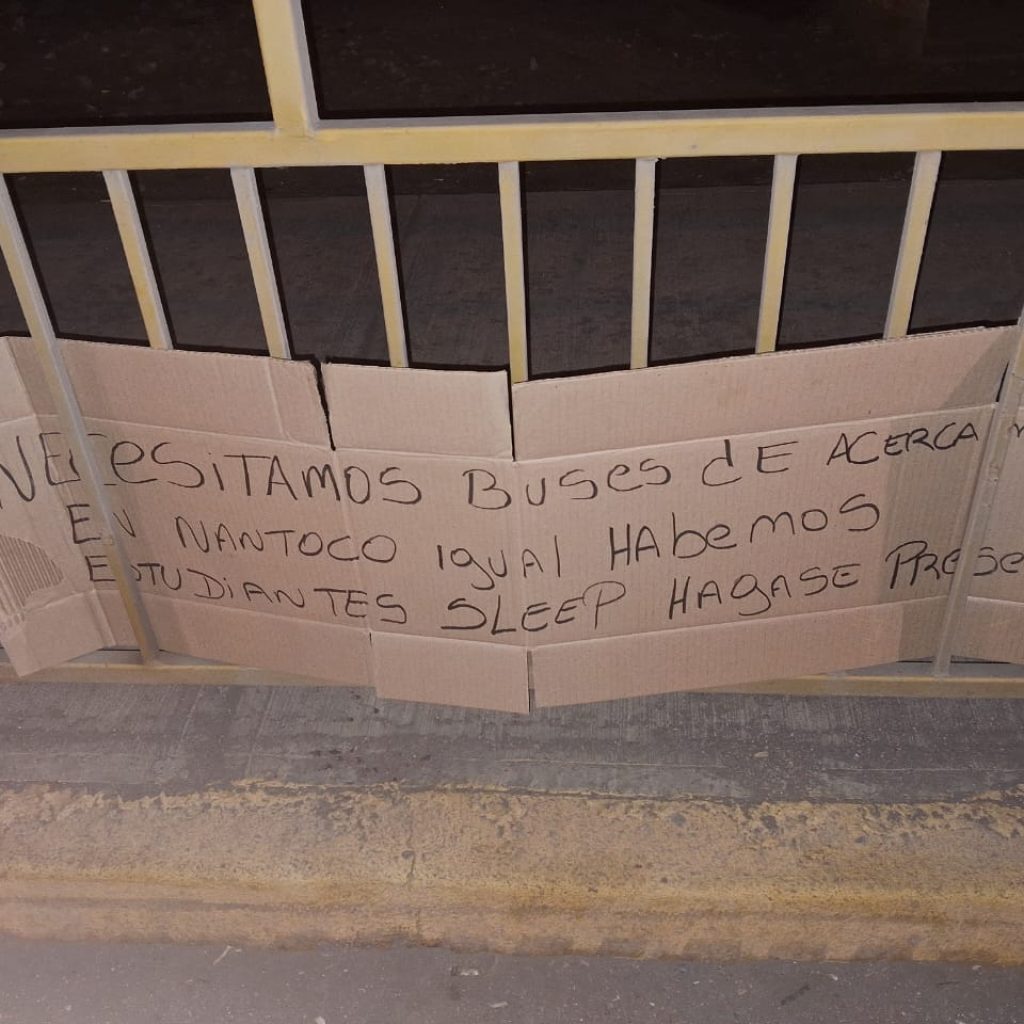 NECESITAMOS BUSES DE ACERCA
EN NANTOCO IGUAL HABEMOS
ESTUDIANTES SLEEP HAGASE PRESE